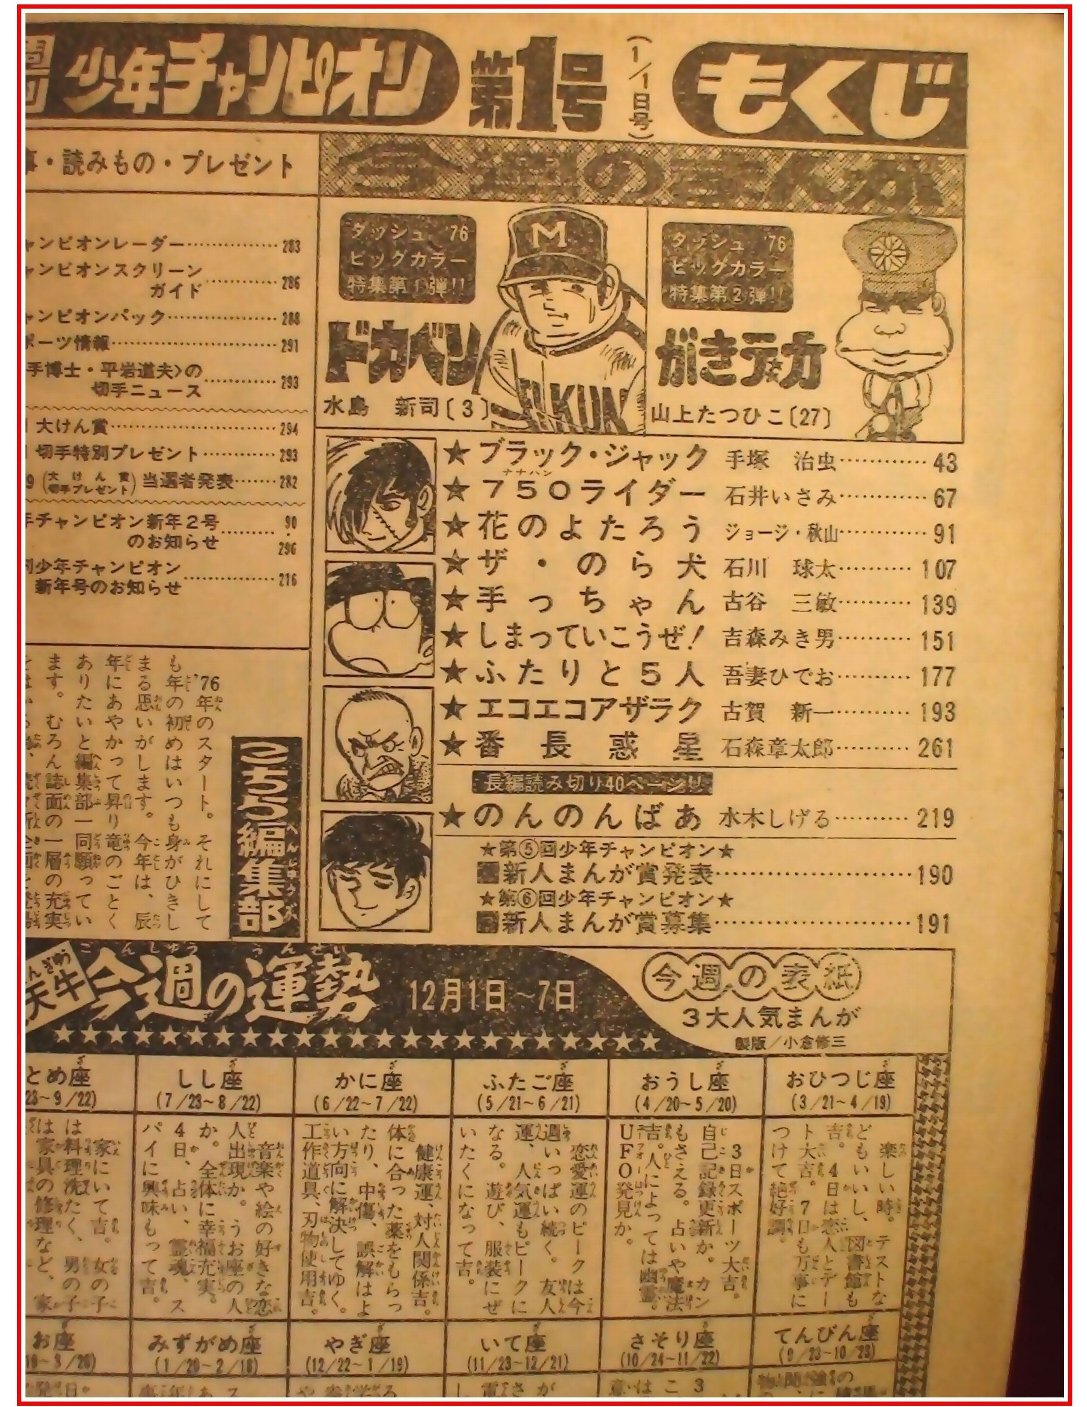 少年チャンピオン 第1号 (1/1日号) もくじ
・読みもの・プレゼント
今週のまんが
ャンピオンレーダー……………283
ャンピオンスクリーン
ガイド……………286
ャンピオンパック……………288
ポーツ情報……………291
手博士・平岩道夫〉の
切手ニュース……………293
大けん賞……………294
切手特別プレゼント……………293
(大けん賞 切手プレゼント)当選者発表……282
チャンピオン新年2号
のお知らせ……………90・296
少年チャンピオン
新年号のお知らせ……………216
ダッシュ'76
ビッグカラー
特集第1弾!!
ドカベン
水島 新司〔3〕
ダッシュ'76
ビッグカラー
特集第2弾!!
がきデカ
山上たつひこ〔27〕
★ブラック・ジャック 手塚 治虫…………43
ナナハン
★750ライダー 石井いさみ…………67
★花のよたろう ジョージ・秋山…………91
★ザ・のら犬 石川 球太…………107
★手っちゃん 古谷 三敏…………139
★しまっていこうぜ! 吉森みき男…………151
★ふたりと5人 吾妻ひでお…………177
★エコエコアザラク 古賀 新一…………193
★番長惑星 石森章太郎…………261
長編読み切り40ページ!!
★のんのんばあ 水木しげる…………219
★第⑤回少年チャンピオン★
新人まんが賞発表……………190
★第⑥回少年チャンピオン★
新人まんが賞募集……………191
こちら編集部
'76年のスタート。それにして
も年の初めはいつも身がひきし
まる思いがします。今年は、辰
年にあやかって昇り竜のごとく
ありたいと編集部一同願ってい
ます。むろん誌面の一層の充実
今週の運勢 12月1日~7日
今週の表紙
3大人気まんが
製版/小倉修三
おひつじ座
(3/21~4/19)
楽しい時。テストな
どもいいし、図書館も
吉。4日は恋人とデー
ト大吉。7日も万事に
つけて絶好調。
おうし座
(4/20~5/20)
3日スポーツ大吉。
自己記録更新か。カン
もさえる。占いや魔法
吉。人によっては幽霊。
UFO発見か。
ふたご座
(5/21~6/21)
恋愛運のピークは今
週いっぱい続く。友人
運、人気運もピークに
なる。遊び、服装にぜ
いたくになって吉。
かに座
(6/22~7/22)
健康運、対人関係吉。
体に合った薬をもらっ
たり、中傷、誤解はよ
い方向に解決してゆく。
工作道具、刃物使用吉。
しし座
(7/23~8/22)
音楽や絵の好きな恋
人出現か。うお座の人
か。全体に幸福充実。
4日、占い、霊魂、ス
パイに興味もって吉。
とめ座
23~9/22)
家にいて吉。女の子
は料理洗たく、男の子
は家具の修理など、家
てんびん座
(9/23~10/23)
さそり座
(10/24~11/22)
いて座
(11/23~12/21)
やぎ座
(12/22~1/19)
みずがめ座
(1/20~2/18)
お座
19~3/20)